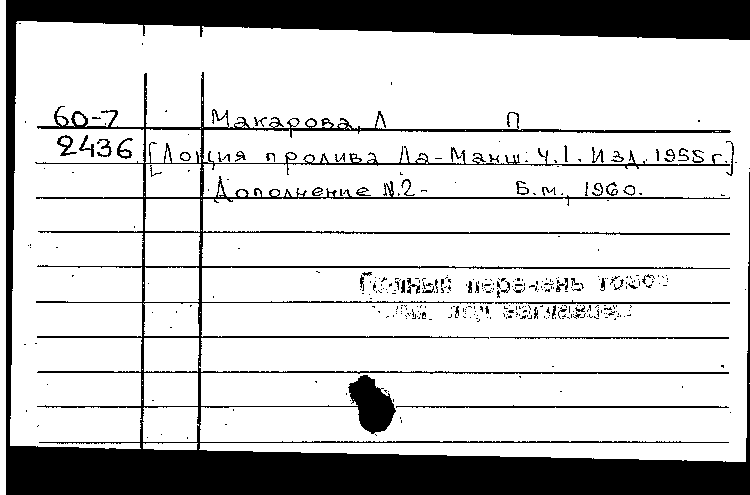 60-7 Макарова, Л П
2436 [Лоция пролива Ла-Манш. Ч.I. Изд. 1955 г.]
Дополнение N.2- Б.м., 1960.
Полный перечень томов
под заглавием